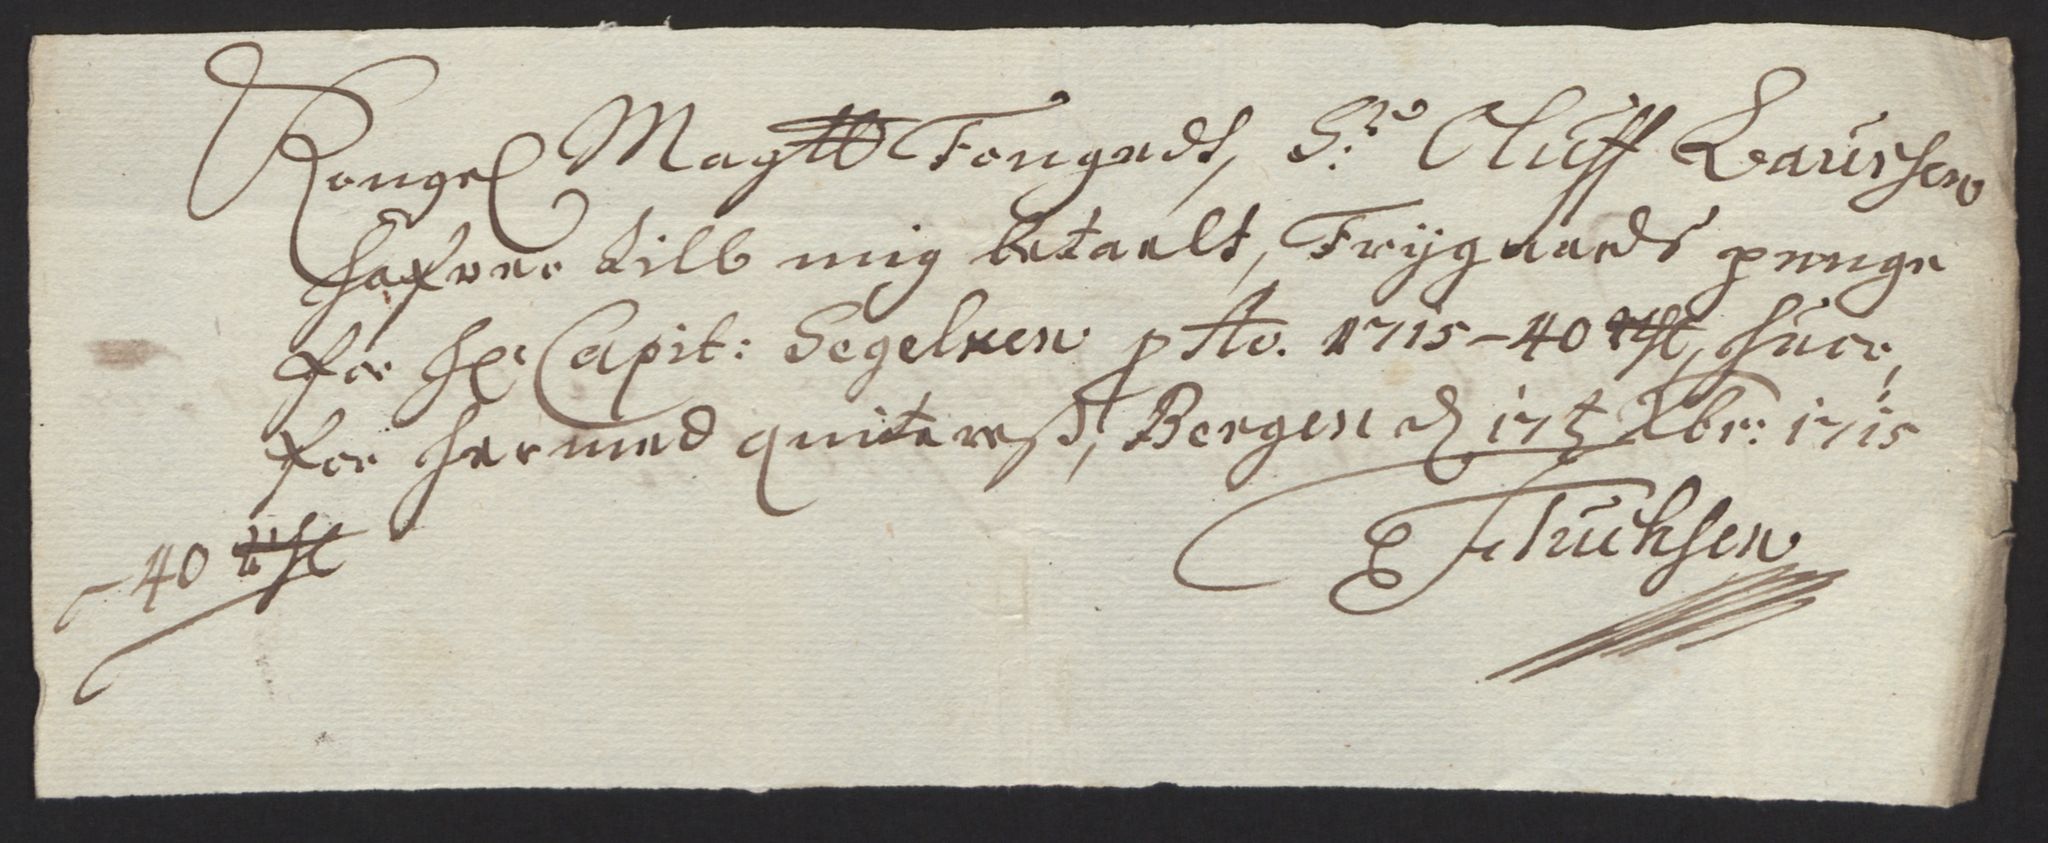 Kongel Maytts Fougedt, Sr. Oluff Laursen
hafver till mig betaelt, Frijgaards penge
for Hr Capit: Segelken p Ao. 1715 - 40 Rdl, huor,
for hermed quiteress, Bergen d 17t Xbr: 1715
- 40 Rdl
Tuchsen